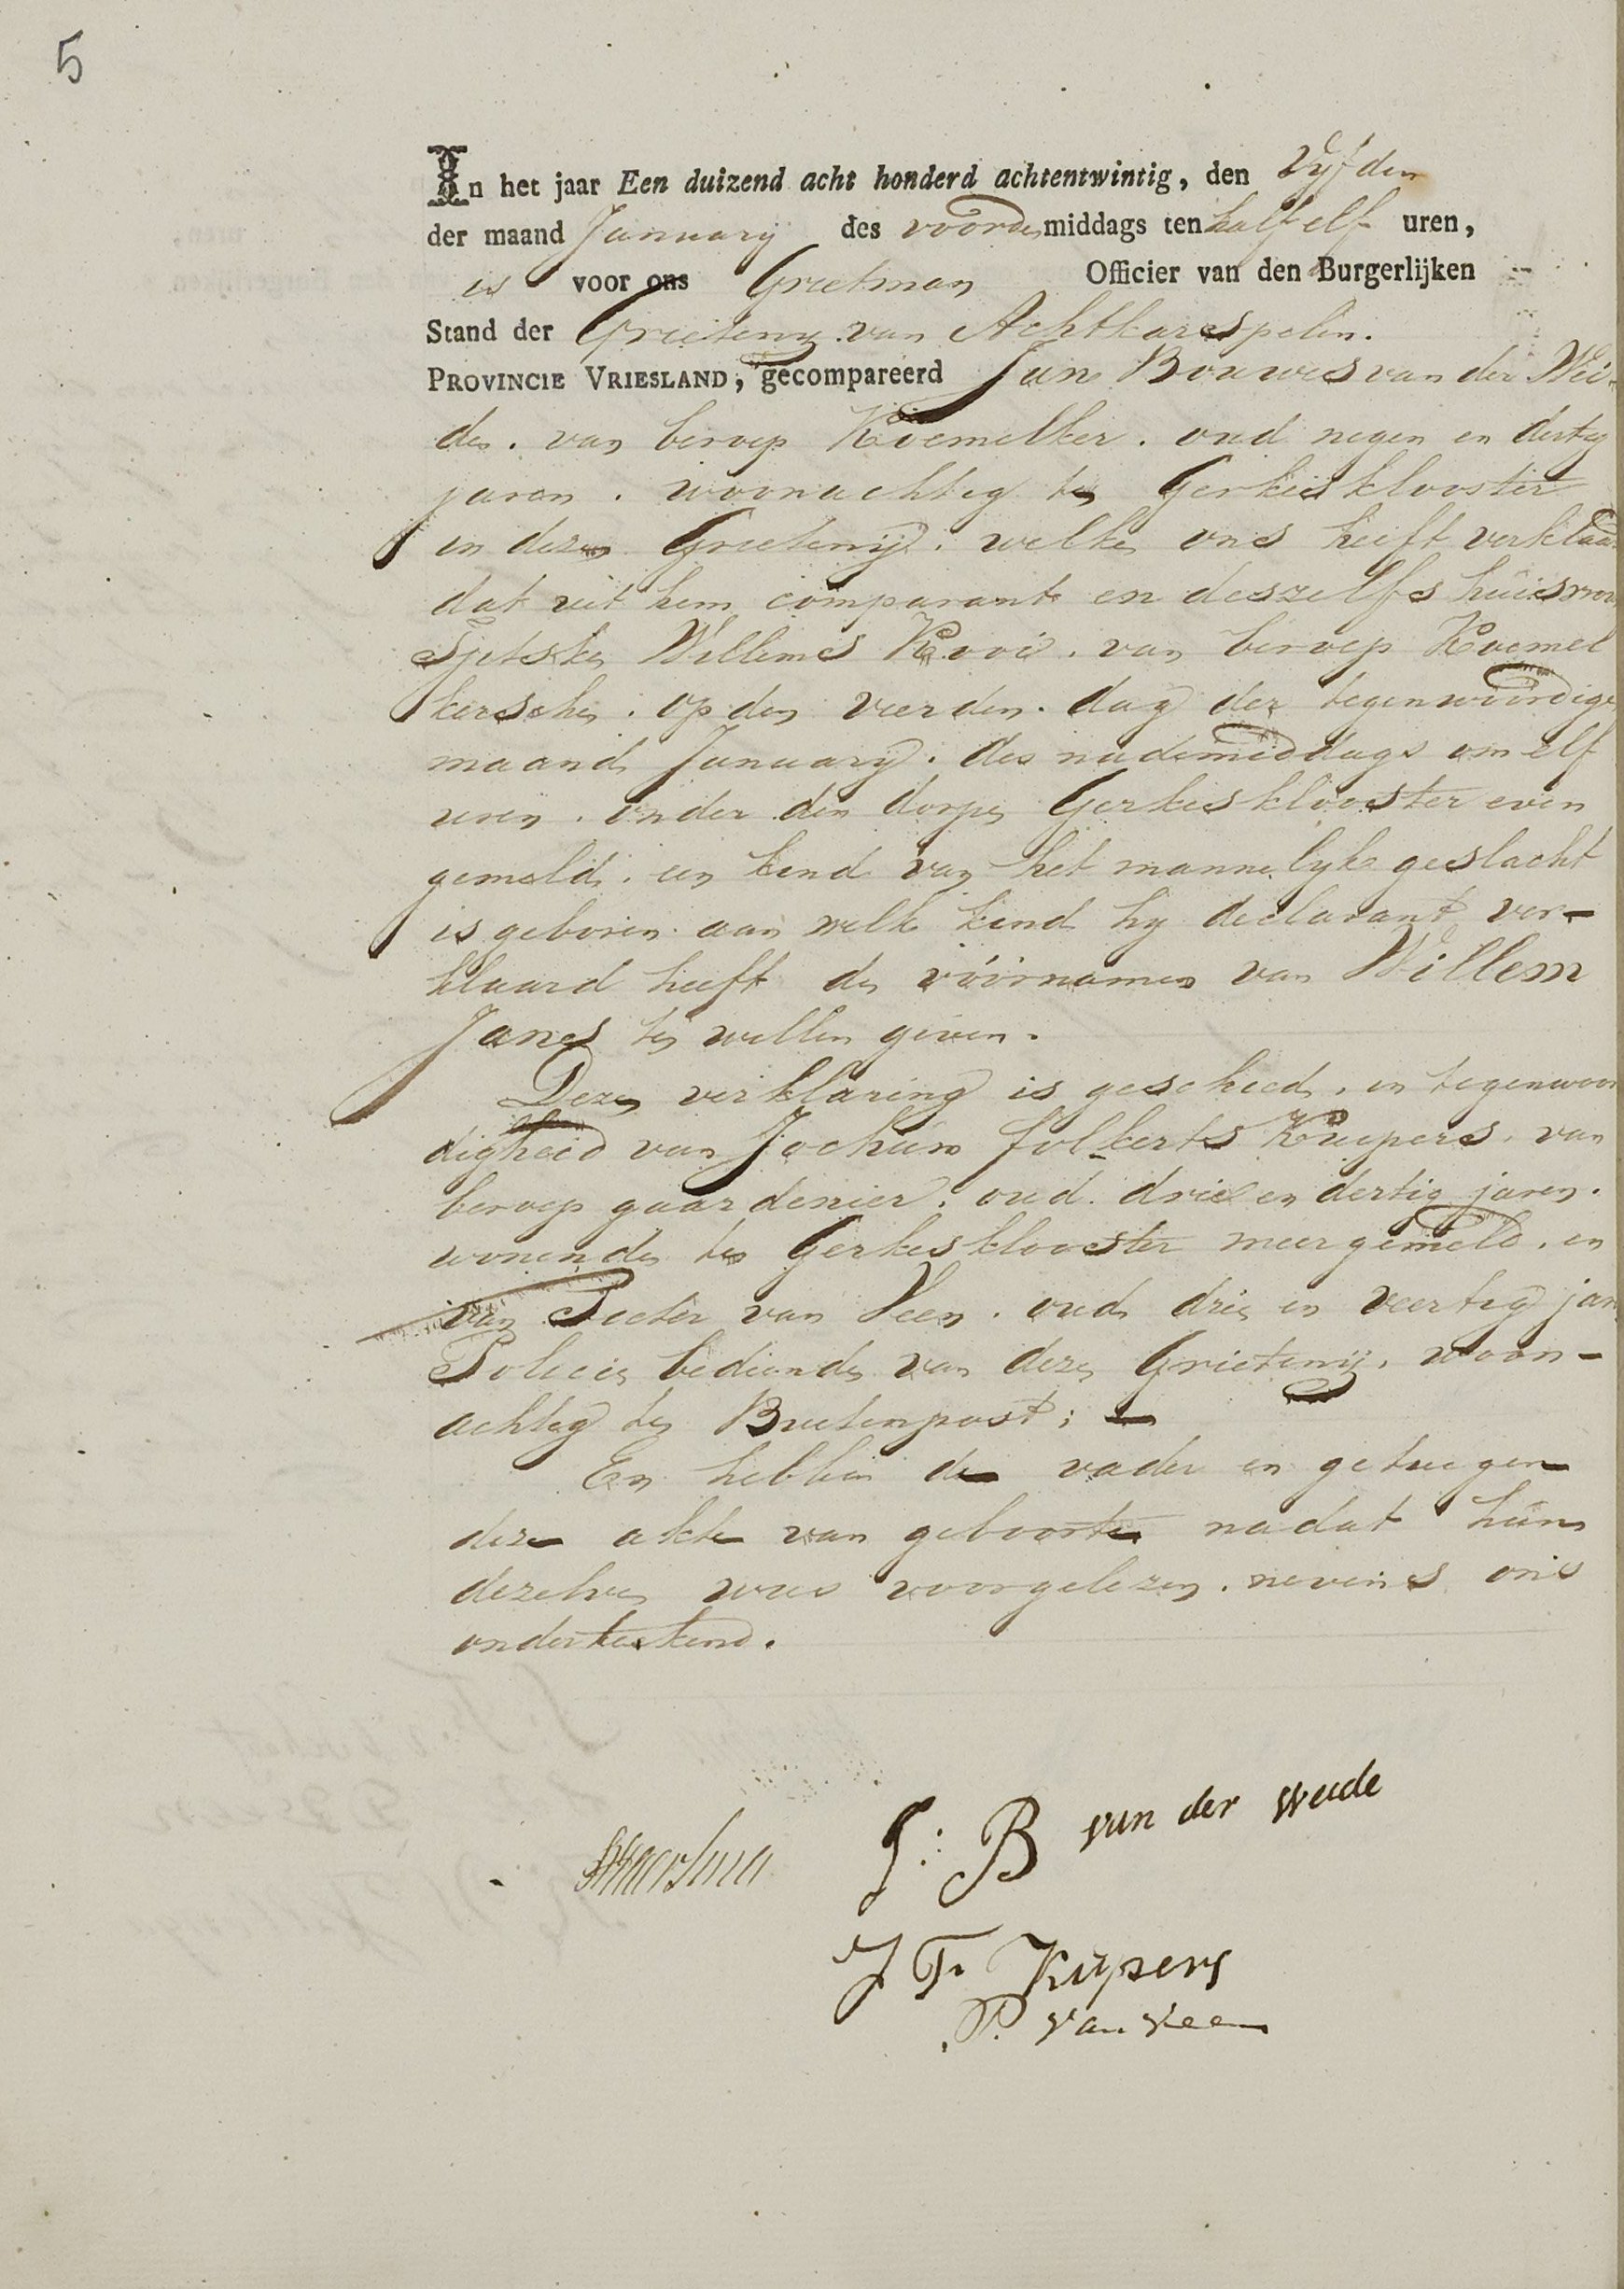 5
In het jaar Een duizend acht honderd achtentwintig, den Vyfden
der maand January des voordemiddags ten half elf uren,
is voor ons Grietman Officier van den Burgerlijken
Stand der Grieteny van Achtkarspelen.
PROVINCIE VRIESLAND, gecompareerd Jan Bouwes van der Wei-
de. van beroep Koemelker. oud negen en dertig
jaren. woonachtig te Gerkesklooster
in deze Grietenij. welke ons heeft verklaard
dat uit hem comparant en deszelfs huisvrou
Sjetske Willems Kooi. van beroep Koemel
kersche. op den vierden dag der tegenwoordige
maand January. des nademiddags om elf
uren. onder den dorpe Gerkesklooster even
gemeld. een kind van het mannelyke geslacht
is geboren. aan welk kind hy declarant ver-
klaard heeft de voornamen van Willem
Janes te willen geven.
Deze verklaring is geschied. in tegenwoor
digheid van Jochum Folkerts Kuipers. van
beroep gaardenier. oud drie en dertig jaren.
wonende te Gerkesklooster meergemeld. en
van Pieter van Veen. oud drie en veertig jar
Policie bediende van deze Grietenij. woon-
achtig te Buitenpost;
En hebben de vader en getuigen
deze akte van geboorte nadat hun
dezelve was voorgelezen. nevens ons
onderteekend.
J: B van der Weide
J F Kuipers
P. van Veen